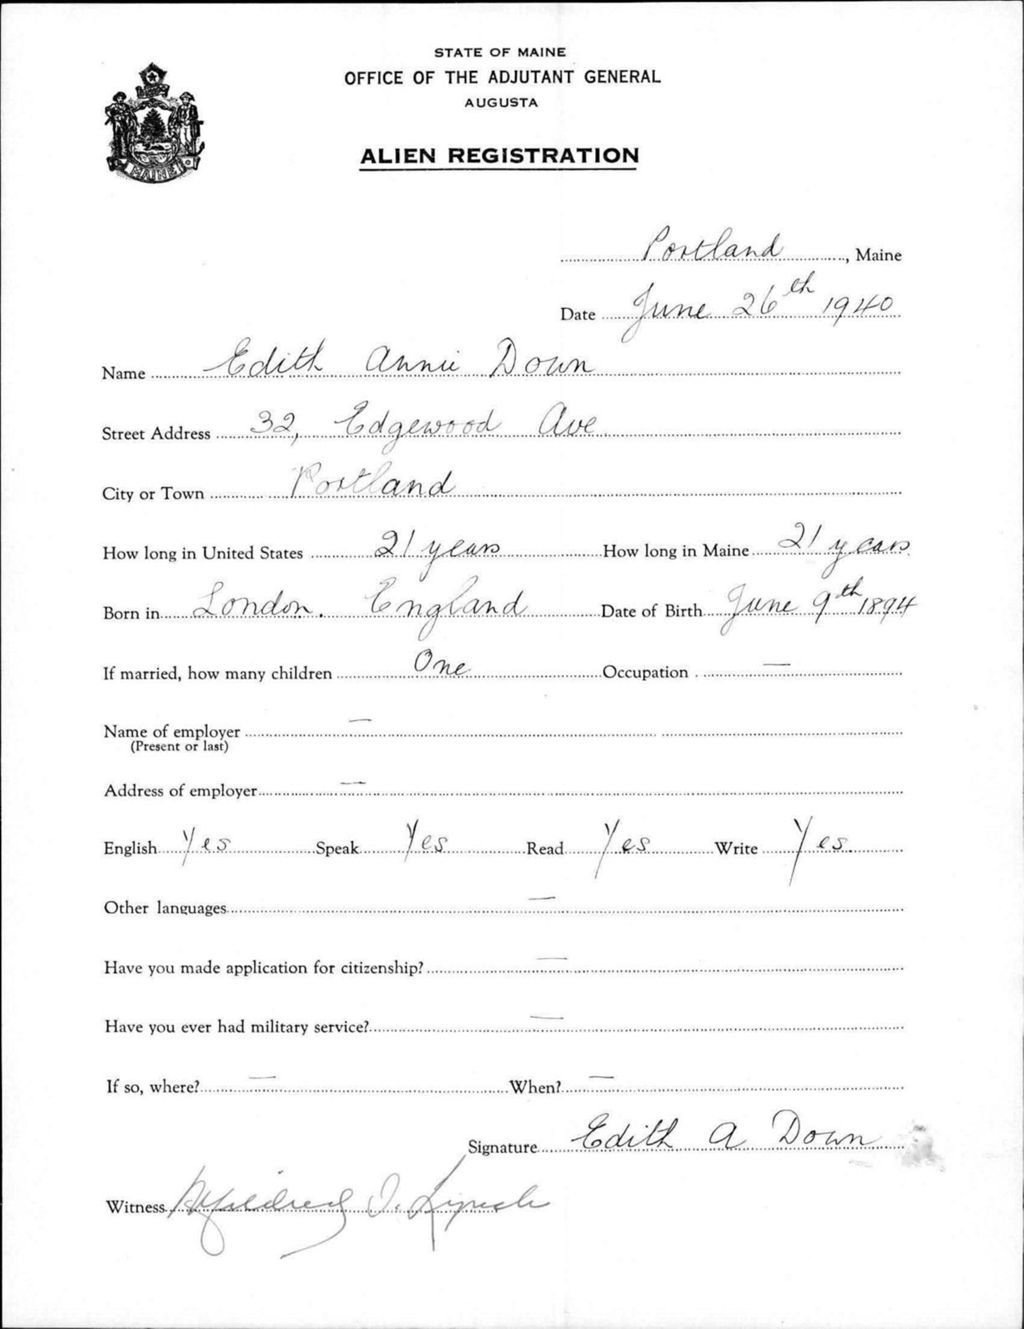 STATE OF MAINE
OFFICE OF THE ADJUTANT GENERAL
AUGUSTA
ALIEN REGISTRATION
MAINE
Portland, Maine
Date June 26th 1940
Name Edith Annie Down
Street Address 32, Edgewood Ave
City or Town Portland
How long in United States 21 years How long in Maine 21 years
Born in London. England Date of Birth June 9th 1894
If married, how many children One Occupation —
Name of employer —
(Present or last)
Address of employer —
English Yes Speak Yes Read Yes Write Yes.
Other languages —
Have you made application for citizenship? —
Have you ever had military service? —
If so, where? — When? —
Signature Edith A Down
Witness Mildred I. Lynch